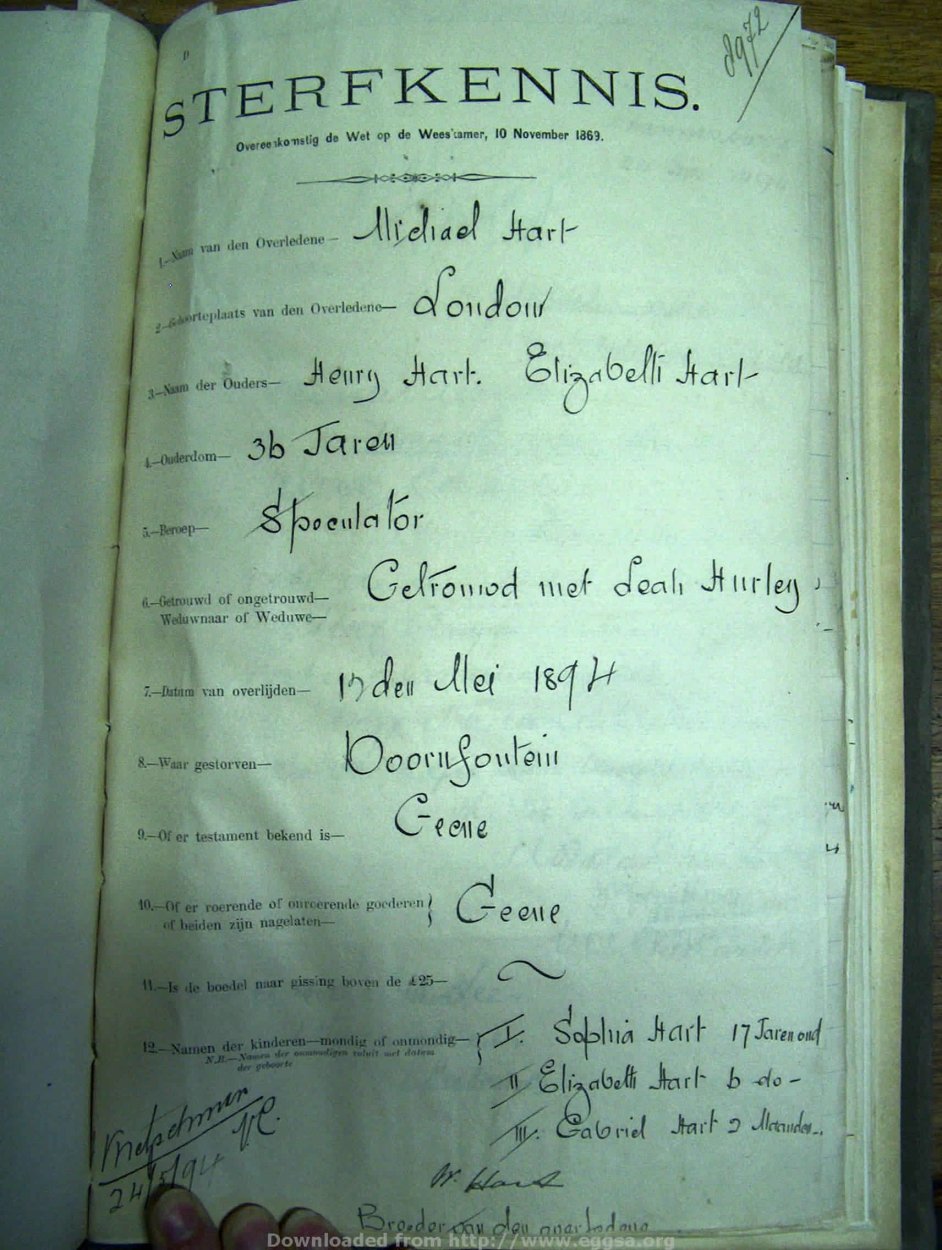 8972
STERFKENNIS.
Overeenkomstig de Wet op de Weeskamer, 10 November 1869.
1.—Naam van den Overledene — Michael Hart
2—Geboorteplaats van den Overledene— London
3—Naam der Ouders— Henry Hart. Elizabeth Hart
4.—Ouderdom— 36 Jaren
5.—Beroep— Speculator
6.—Getrouwd of ongetrouwd— Getrouwd met Leah Hurley
Weduwnaar of Weduwe—
7.—Datum van overlijden— 17 den Mei 1894
8.—Waar gestorven— Doornfontein
9.—Of er testament bekend is— Geene
10.—Of er roerende of onroerende goederen} Geene
of beiden zijn nagelaten—
11.—Is de boedel naar gissing boven de £25— ~
12.—Namen der kinderen—mondig of onmondig— { I. Sophia Hart 17 Jaren oud
N.B.—Namen der onmondigen voluit met datum
der geboorte
II Elizabeth Hart 6 do -
III. Gabriel Hart 2 Maanden.
24/5/94
W. Hart
Broeder van den overledene
Downloaded from http://www.eggsa.org